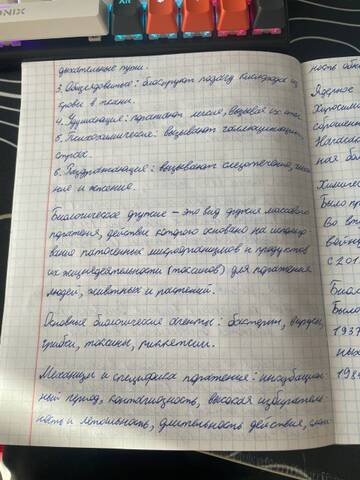 NIX
дыхательные пути.
3. Общеядовитые: блокируют подачу кислорода из
крови в ткани.
4. Удушающие: поражают легкие, вызывая их отек.
5. Психохимические: вызывают галлюцинации,
страх.
6. Раздражающие: вызывают слезотечение,
и жжение.
Биологическое оружие – это вид оружия массового
поражения, действие которого основано на использо
вании патогенных микроорганизмов и продуктов
их жизнедеятельности (токсинов) для поражения
людей, животных и растений.
Основные биологические агенты: бактерии, вирусы,
грибки, токсины, риккетсии.
Механизм и специфика поражения: инкубацион-
ный период, контагиозность, высокая избиратель-
ность и летальность, длительность действия,
ность
Ядерное
Хиросима
сброшена
Нагасаки
ная бол
Химич
Было пр
Во вт
войны
с 201
Биол
Было
1937
ных
198